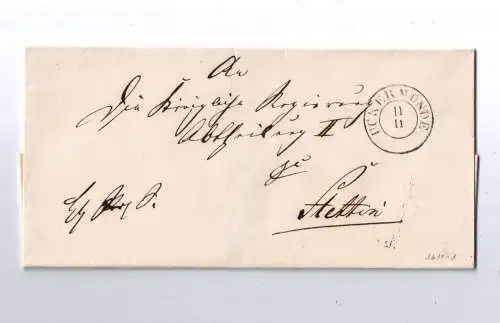 An
Die Königliche Regierung
Abtheilung II
zu
Stettin
UCKERMÜNDE
11
11